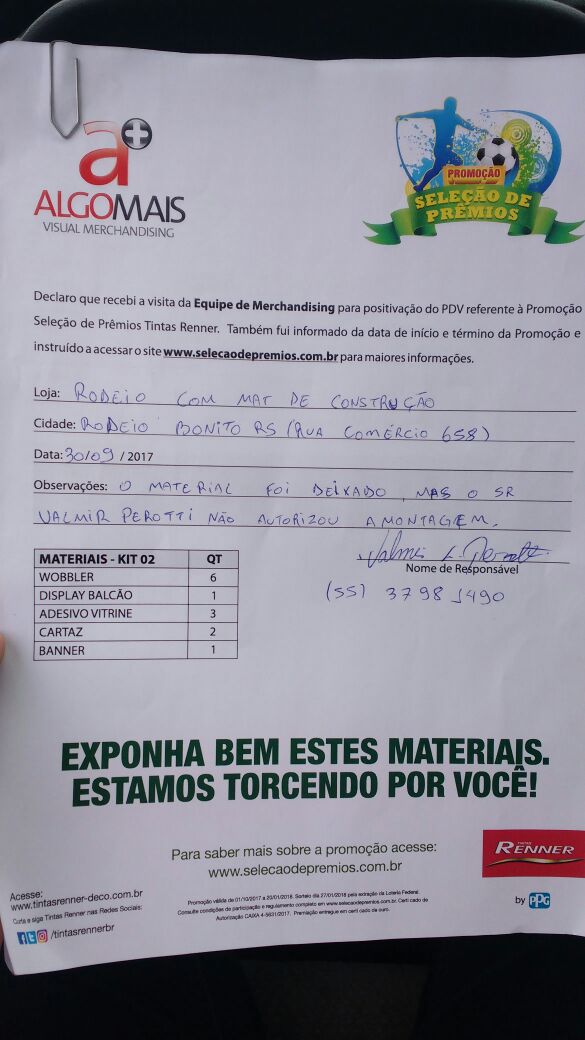 a+
ALGOMAIS
VISUAL MERCHANDISING
PROMOÇÃO
SELEÇÃO DE
PRÊMIOS
Declaro que recebi a visita da Equipe de Merchandising para positivação do PDV referente à Promoção
Seleção de Prêmios Tintas Renner. Também fui informado da data de início e término da Promoção e
instruído a acessar o site www.selecaodepremios.com.br para maiores informações.
Loja: RODEIO COM MAT DE CONSTRUÇÃO
Cidade: RODEIO BONITO RS (RUA COMÉRCIO 658)
Data: 30/09 / 2017
Observações: O MATERIAL FOI DEIXADO, MAS O SR
VALMIR PEROTTI NÃO AUTORIZOU A MONTAGEM.
Nome de Responsável
(55) 3798 1490
MATERIAIS - KIT 02 QT
WOBBLER 6
DISPLAY BALCÃO 1
ADESIVO VITRINE 3
CARTAZ 2
BANNER 1
EXPONHA BEM ESTES MATERIAIS.
ESTAMOS TORCENDO POR VOCÊ!
Para saber mais sobre a promoção acesse:
www.selecaodepremios.com.br
TINTAS
RENNER
by PPG
Acesse:
www.tintasrenner-deco.com.br
Curta e siga Tintas Renner nas Redes Sociais:
/tintasrennerbr
Promoção válida de 01/10/2017 a 20/01/2018. Sorteio dia 27/01/2018 pela extração da Loteria Federal.
Consulte condições de participação e regulamento completo em www.selecaodepremios.com.br. Certificado de
Autorização CAIXA 4-5631/2017. Premiação entregue em certificado de ouro.